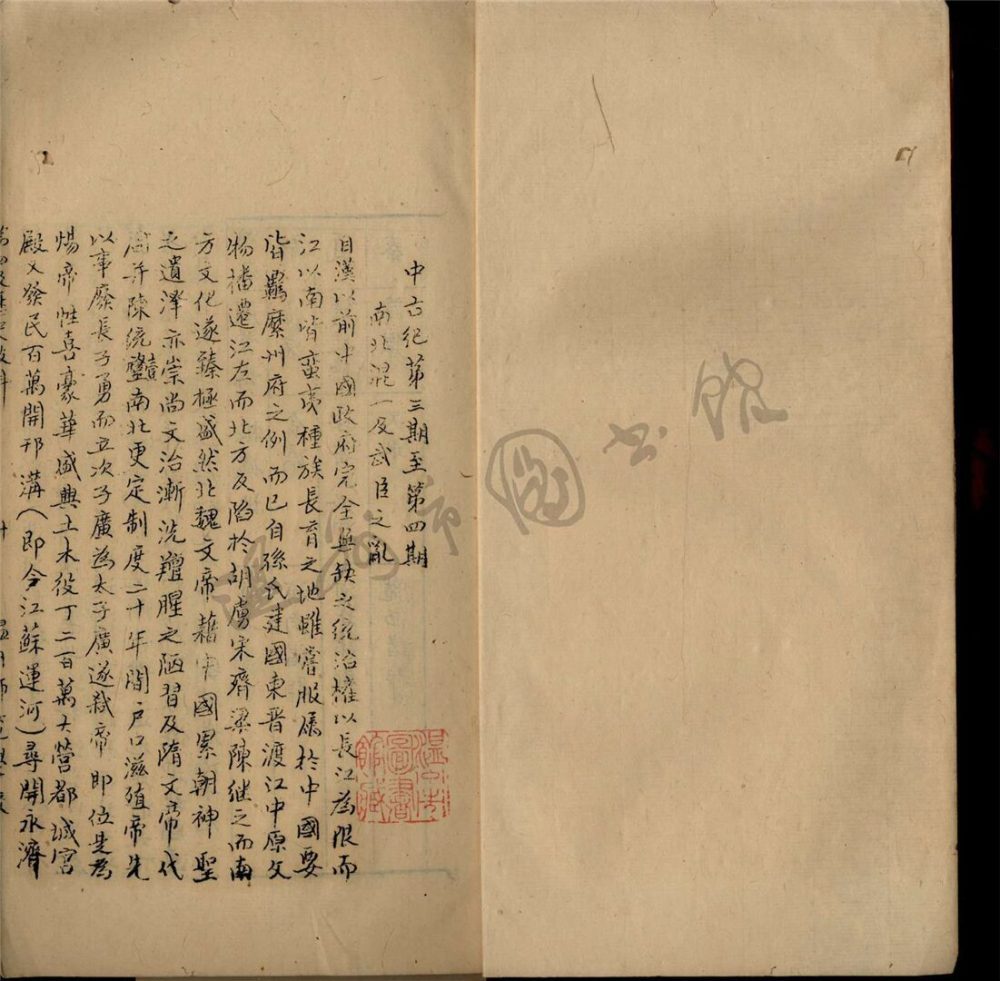 中古紀第三期至第四期
南北混一及武臣之亂
自漢以前中國政府完全無缺之統治權以長江為限而
江以南皆蠻夷種族長育之地雖嘗服屬於中國要
皆羈縻州府之例而已自孫氏建國東晉渡江中原文
物播遷江左而北方反陷於胡虜宋齊梁陳繼之而南
方文化遂臻極盛然北魏文帝藉中國累朝神聖
之遺澤亦崇尚文治漸洗羶腥之陋習及隋文帝代
周并陳統鹽南北更定制度二十年間戶口滋殖帝先
以事廢長子勇而立次子廣為太子廣遂弒帝即位是為
煬帝性喜豪華盛興土木役丁二百萬大營都城宮
殿又發民百萬開邗溝(即今江蘇運河)尋開永濟
溫州市圖書館
溫州市圖書館藏